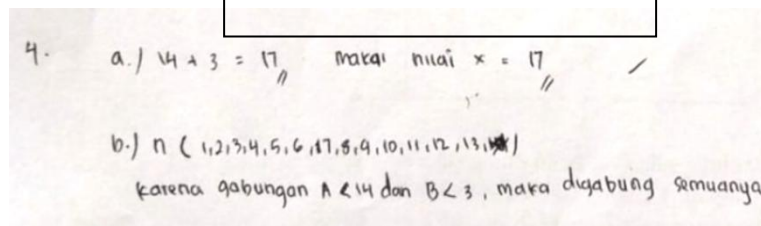 4. a.) 14 + 3 = 17 maka nilai x = 17
b.) n ( 1,2,3,4,5,6,17,8,9,10,11,12,13, )
karena gabungan A < 14 dan B < 3, maka digabung semuanya